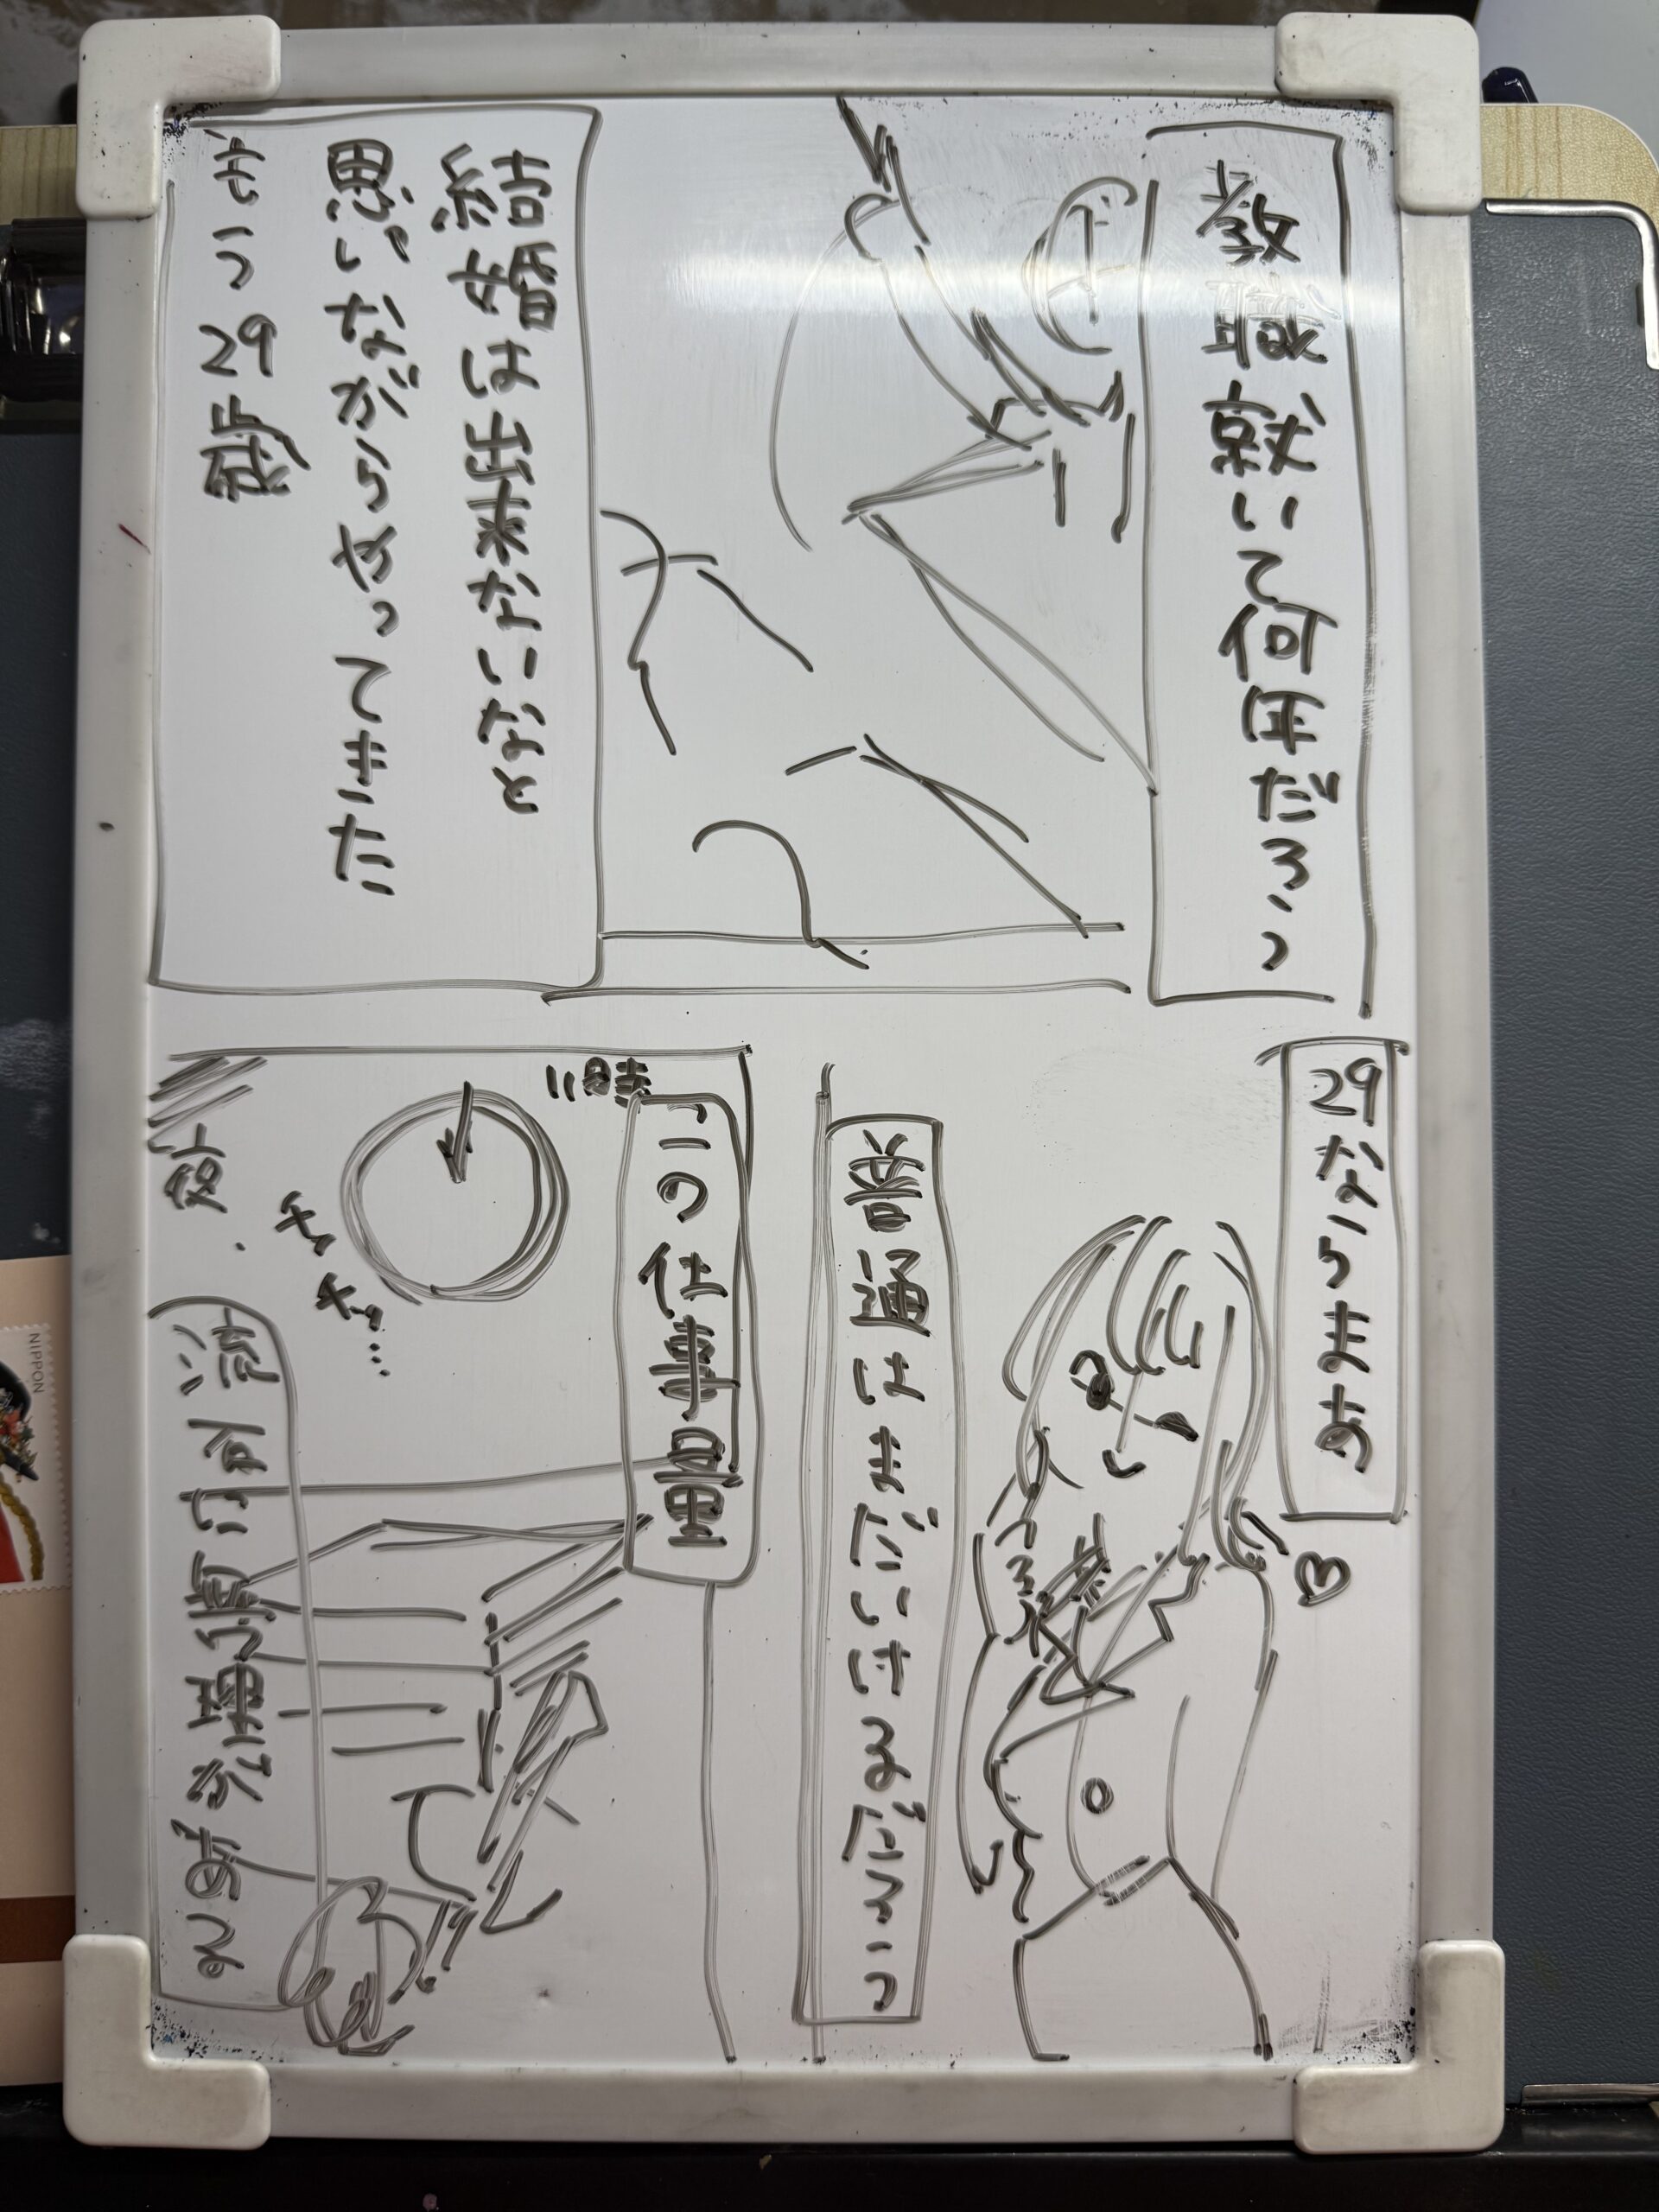 教職就いて何年だろう
結婚は出来ないなと
思いながらやってきた
もう29歳
29ならまあ
普通はまだいけるだろう
この仕事量
11時
チッ
チッ…
NIPPON